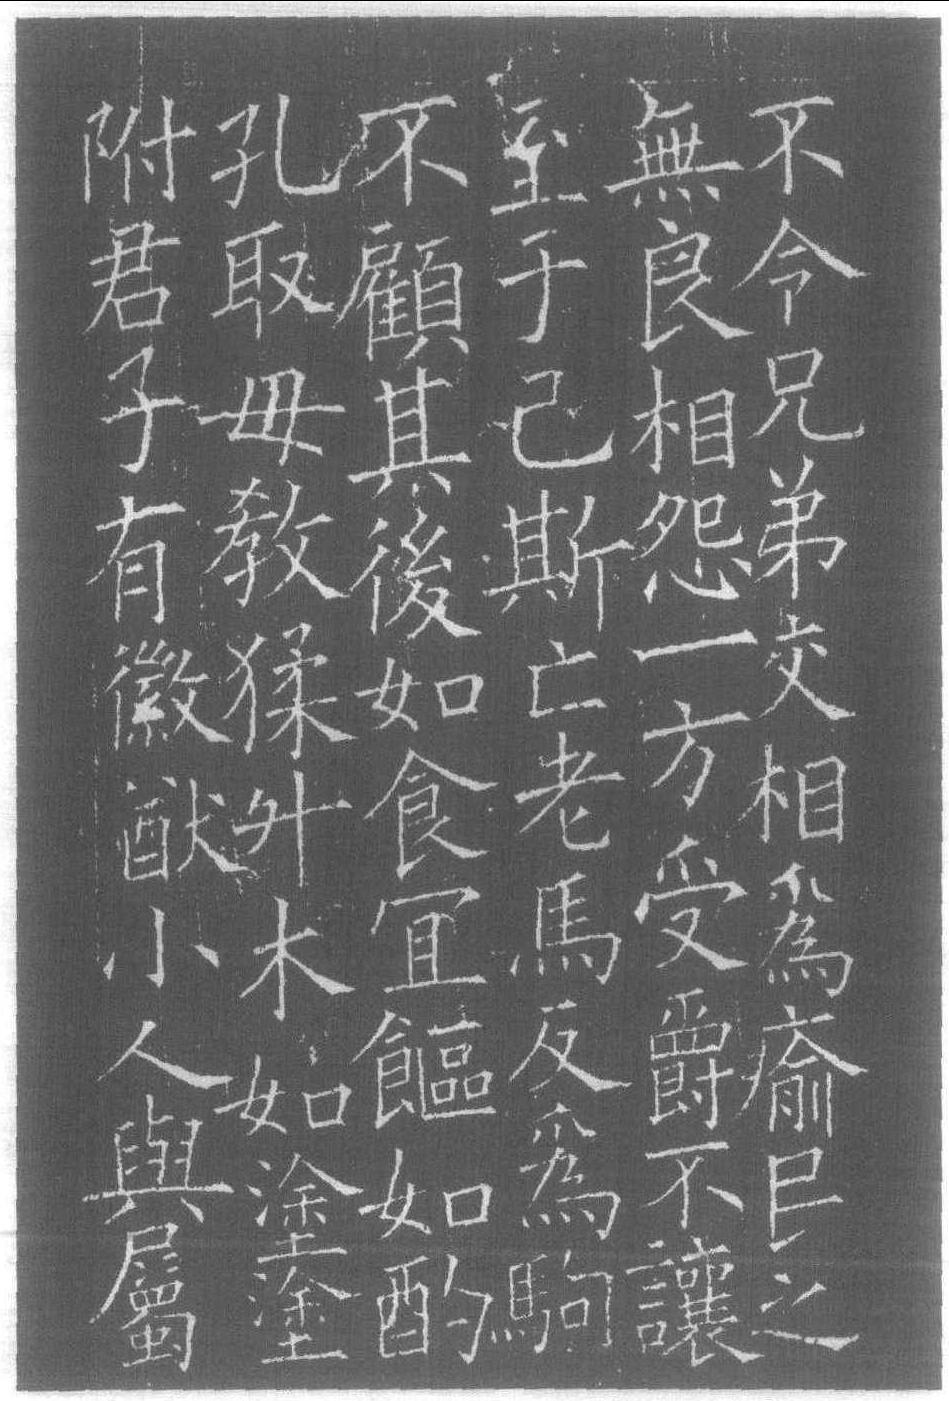 不令兄弟交相爲瘉民之
無良相怨一方受爵不讓
至于己斯亡老馬反爲駒
不顧其後如食冝饇如酌
孔取毋教猱升木如塗塗
附君子有徽猷小人與屬